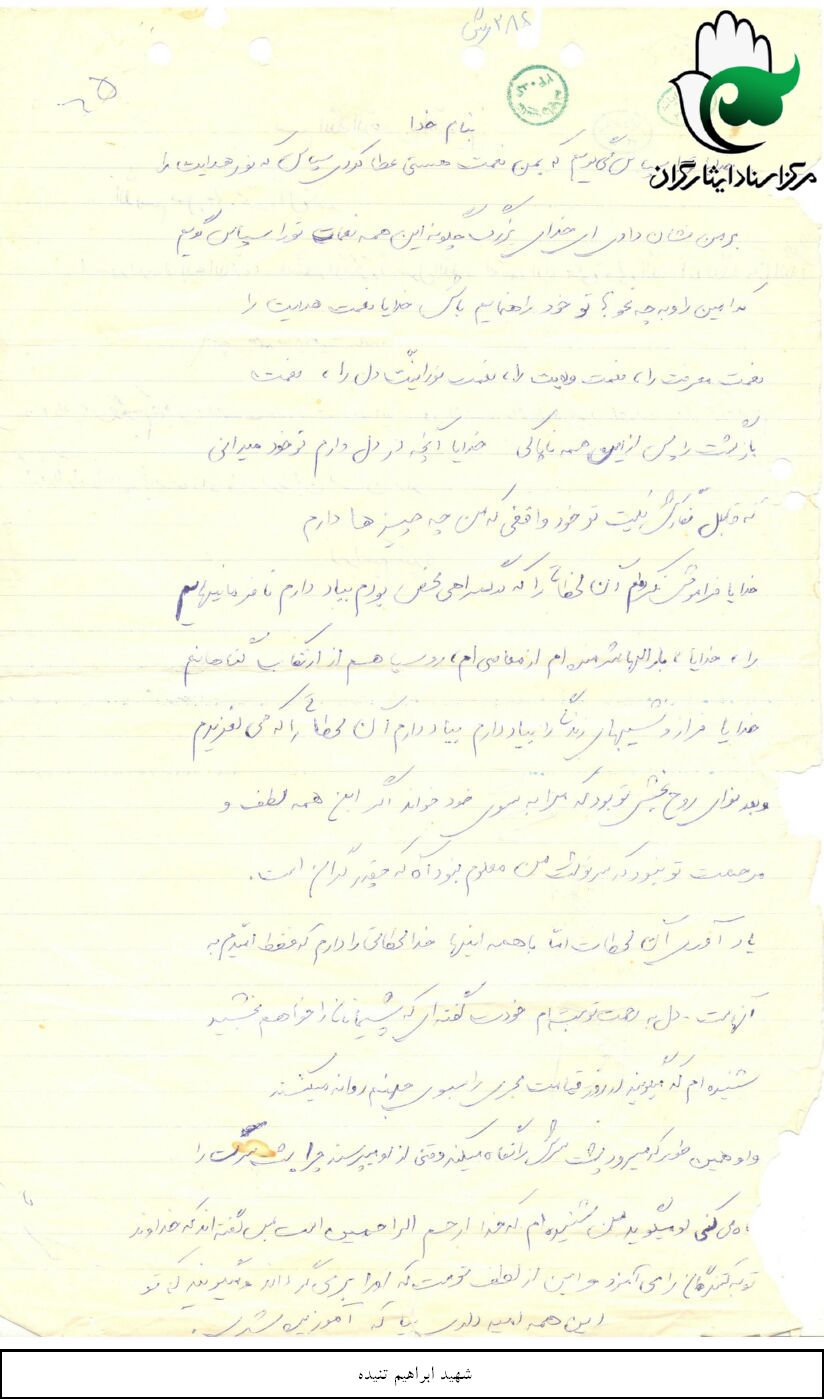 ۳۸۶
مرکز اسناد ایثارگران
بنام خدا
خدایا سپاس می‌گویم که بمن نعمت هستی عطا کردی سپاس که نور هدایت را
بر من نشان دادی ای خدای بزرگ چگونه این همه نعمات تو را سپاس گویم
کدامین را و به چه نحو؟ تو خود راهنمایم باش خدایا نعمت هدایت را
نعمت معرفت را، نعمت ولایت را، نعمت نورانیت دل را، نعمت
بازگشت را پس از این همه ناپاکی خدایا آنچه در دل دارم تو خود میدانی
که قابل نگارش نیست تو خود واقفی که من چه چیزها دارم
خدایا فراموش نکرده‌ام آن لحظات را که در گمراهی محض بودم بیاد دارم نافرمانیهایم
را، خدایا، بارالها شرمنده ام از معاصی ام، روسیاهم از ارتکاب گناهانم
خدایا فراز و نشیبهای زندگی را بیاد دارم بیاد دارم آن لحظات را که می لغزیدم
و بعد نوای روح بخش تو بود که مرا به سوی خود خواند اگر این همه لطف و
مرحمت تو نبود که سرنوشت من معلوم نبود آه که چقدر گران است.
یاد آوری آن لحظات اما با همه اینها خدا لحظاتی را دارم که فقط امیدم به
آنهاست. دل به رحمت تو بسته ام خودت گفته ای که پشیمانان را خواهم بخشید
شنیده ام که میگویند در روز قیامت مجرمی را بسوی جهنم روانه میکنند
و او همین طور که میرود پشت سرش را نگاه میکند وقتی از او میپرسند چرا پشت سرت را
نگاه می کنی او میگوید من شنیده ام که خدا ارحم الراحمین است پس گفته اند که خداوند
توبه کنندگان را می آمرزد و این از لطف توست که او را برمی گردانند و میگویند که تو
این همه امید داری بیا که آمرزیده شدی.
شهید ابراهیم تنیده